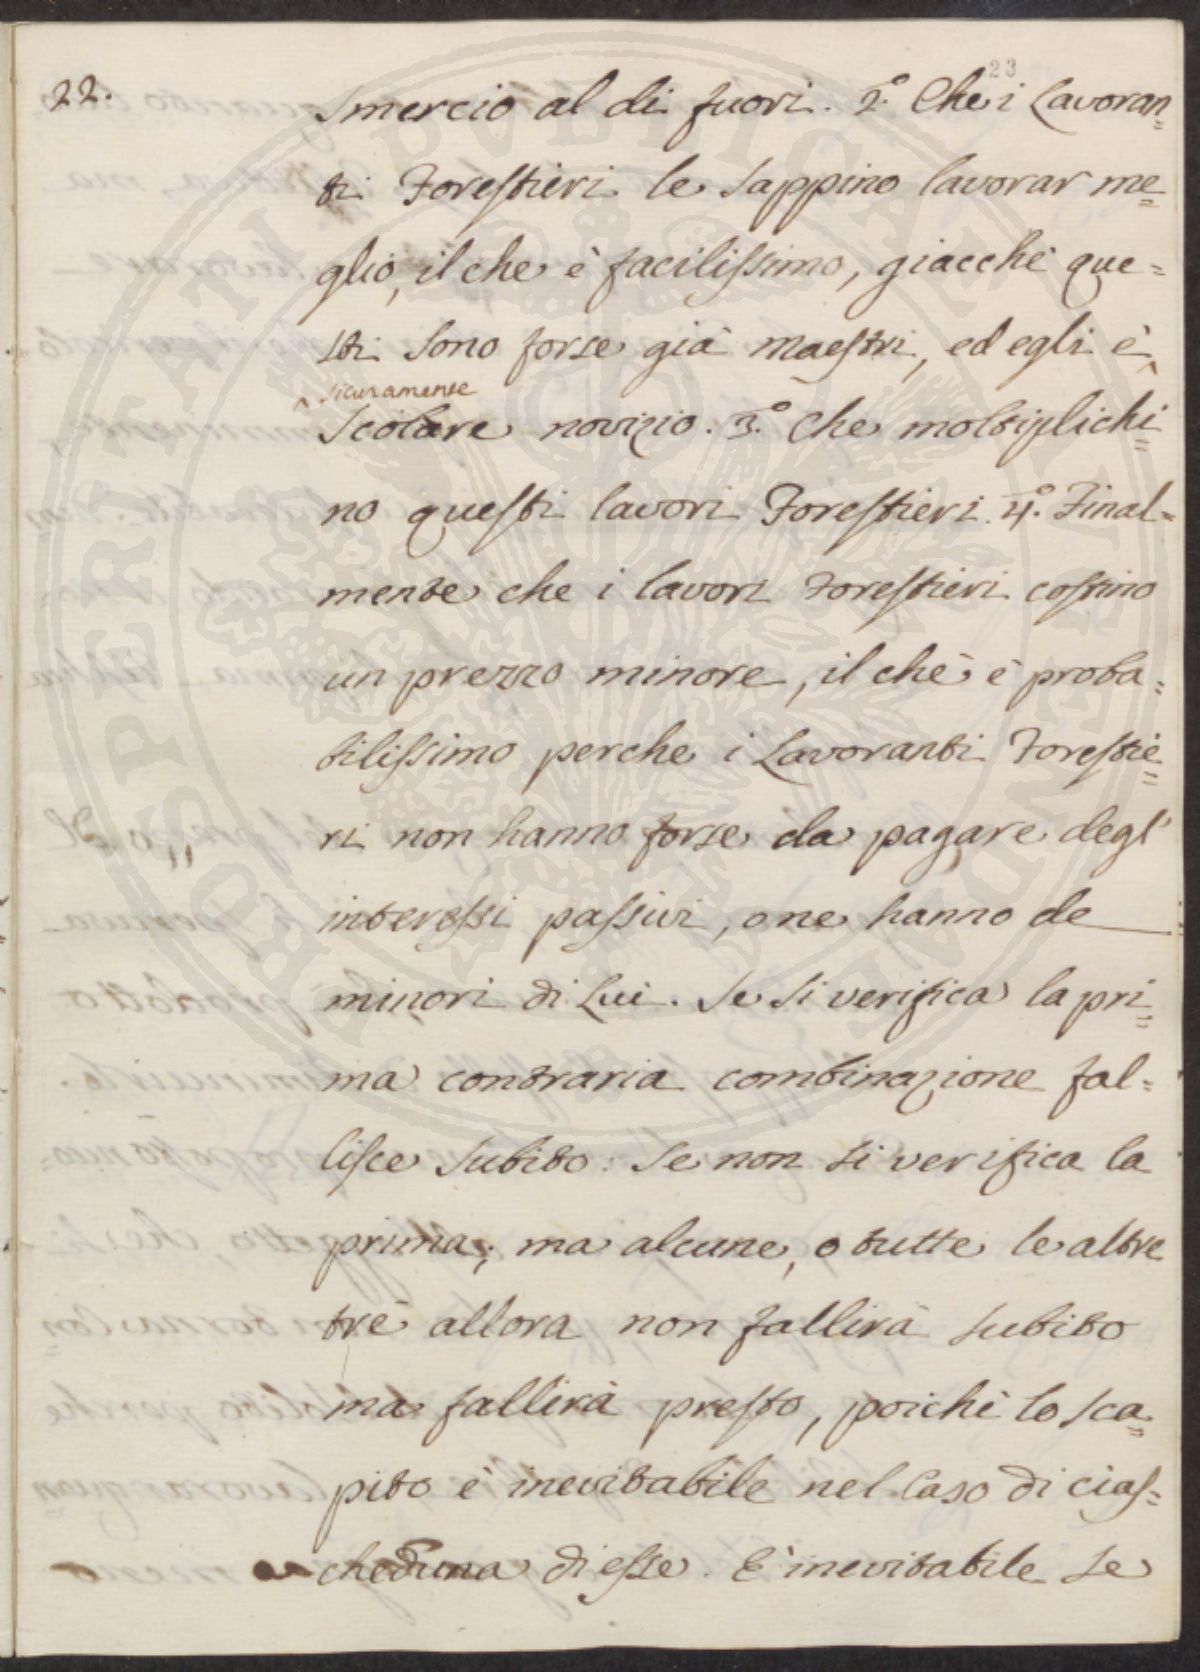 23
22.
smercio al di fuori. 2.° Che i Lavoran=
ti Forestieri le sappino lavorar me=
glio, il che è facilissimo, giacchè que=
sti sono forse già maestri, ed egli è ^
^ sicuramente
Scolare novizio. 3.° Che moltiplichi=
no questi lavori Forestieri. 4.° Final=
mente che i lavori Forestieri costino
un prezzo minore, il chè è proba=
bilissimo perche i Lavoranti Forestie=
ri non hanno forse da pagare degl'
interessi passivi, o ne hanno de
minori di Lui. Se si verifica la pri=
ma contraria combinazione fal=
lisce subito: Se non si verifica la
prima; ma alcune, o tutte le altre
trè allora non fallirà subito
ma fallirà presto, poichè lo sca=
pito è inevitabile nel Caso di cias=
cheduna di esse. E' inevitabile se
PROSPERITATI PUBLICAE